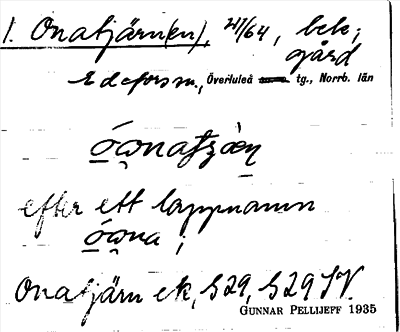 1. Onatjärn(en), 21/64, bek;
gård
Edeforsm., Överluleå tg., Norrb. län
efter ett lappnamn
Onatjärn ek, S29, S29 SV.
GUNNAR PELLIJEFF 1935